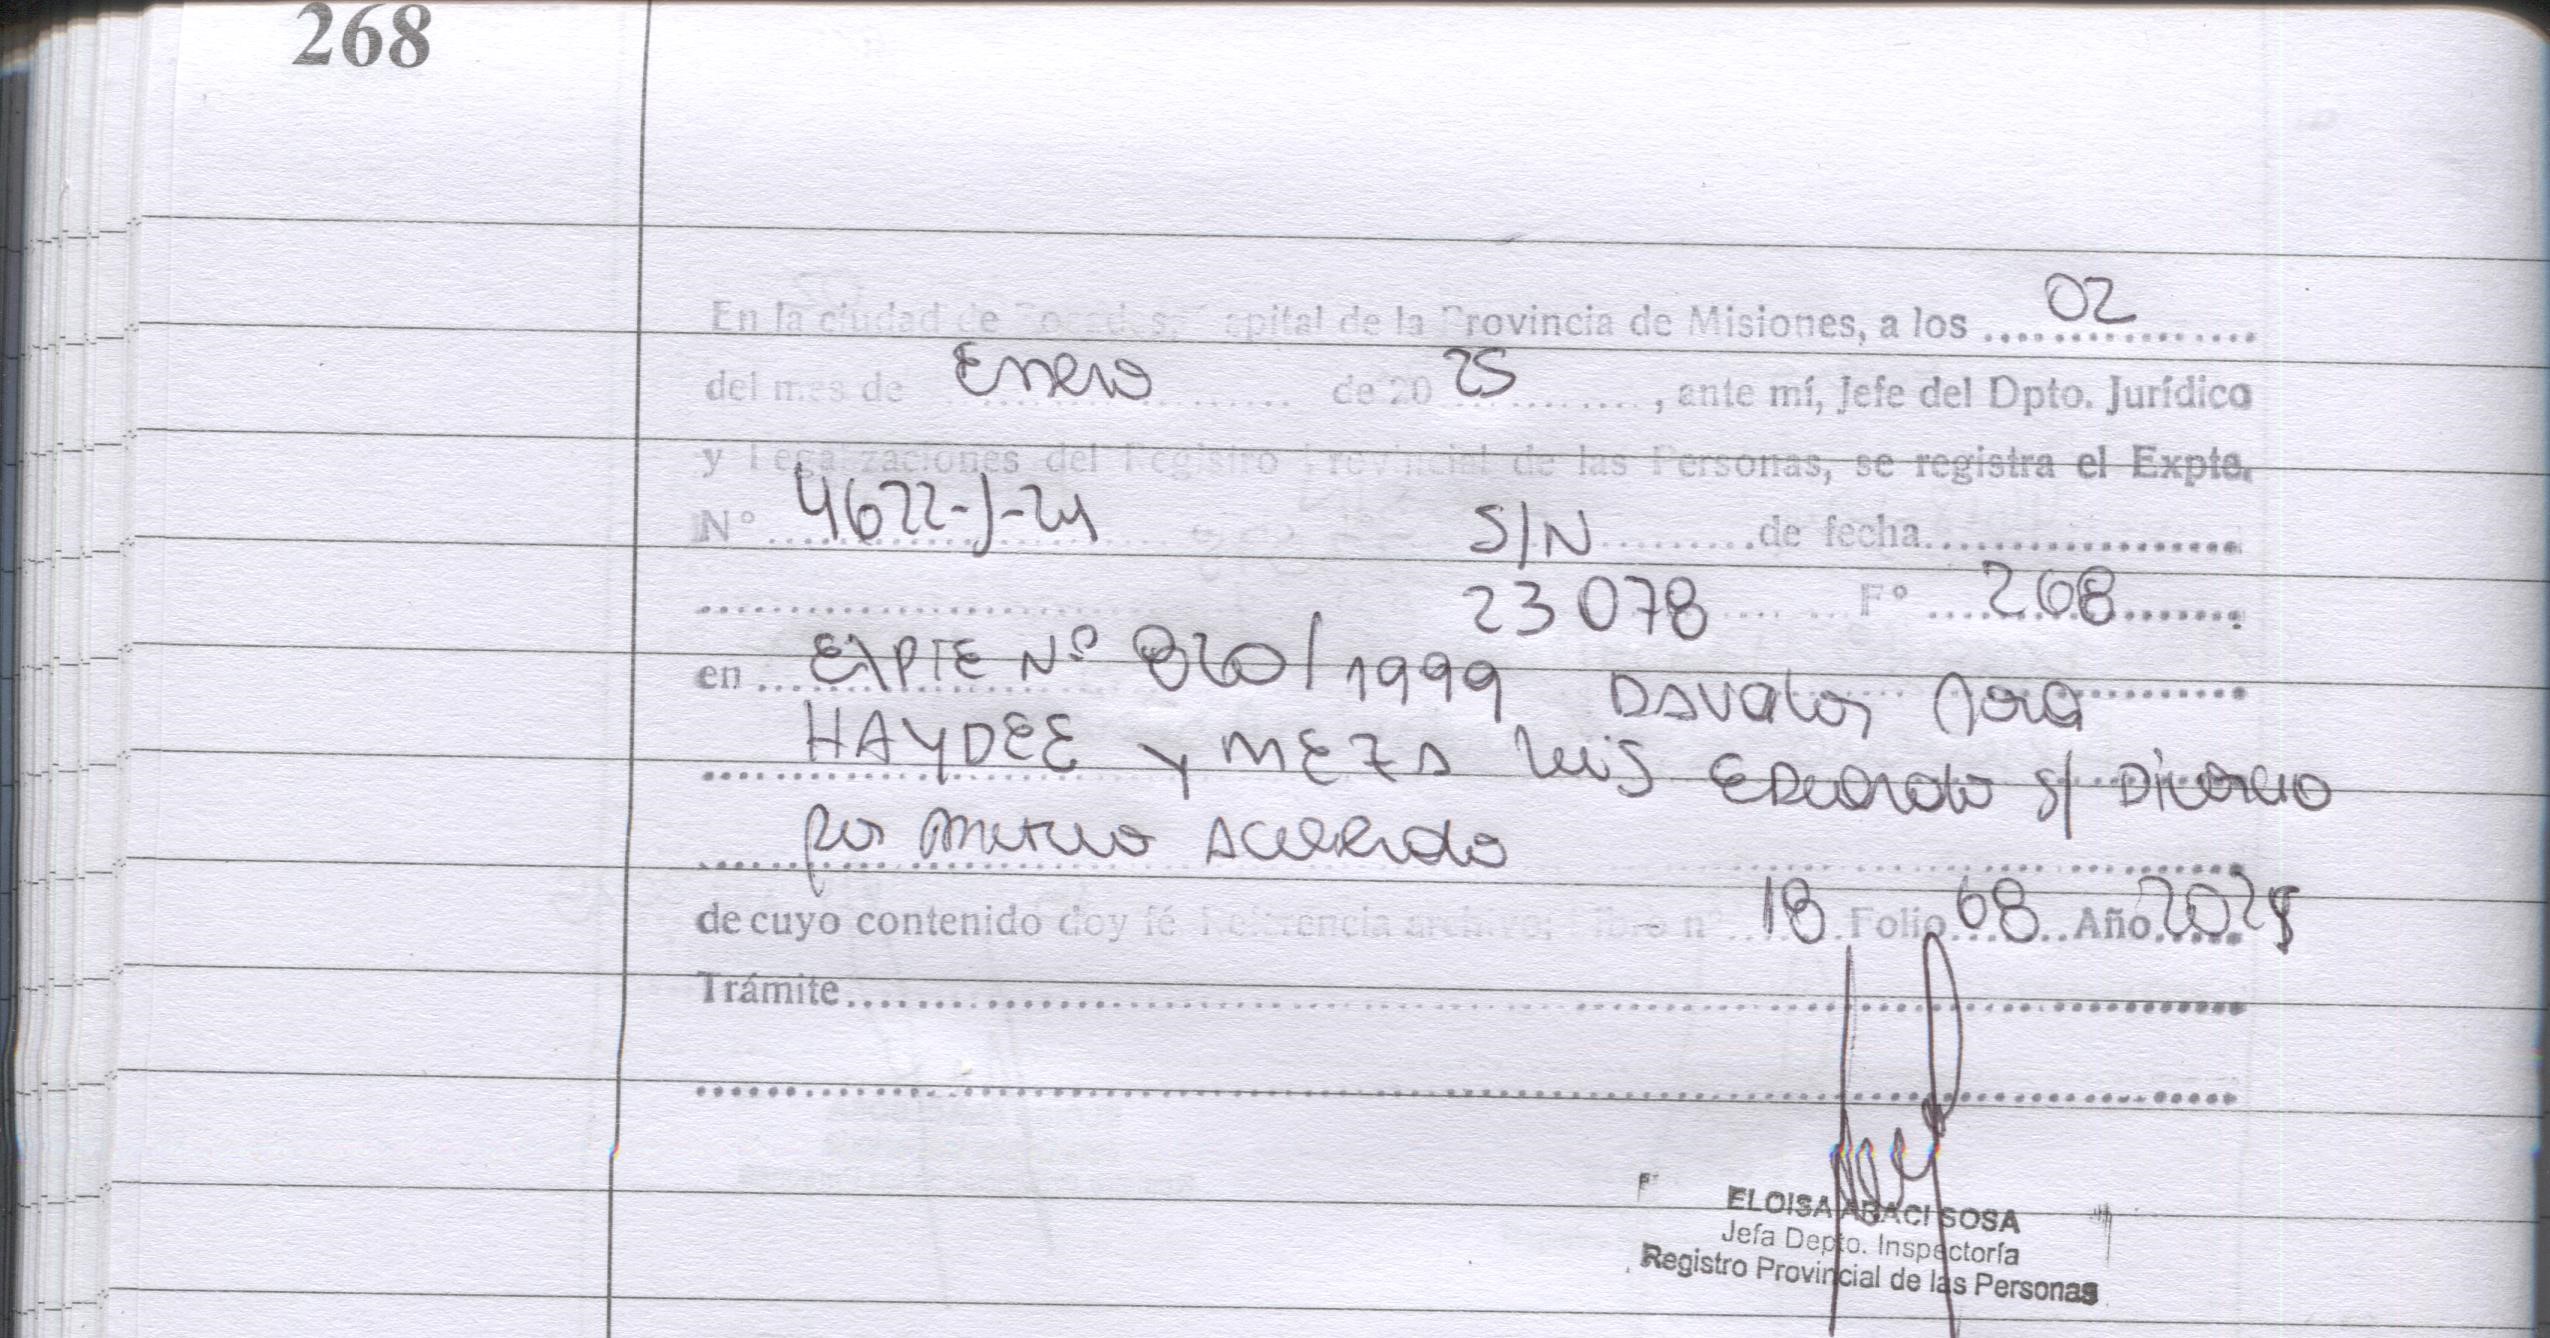 268
En la ciudad de Posadas, Capital de la Provincia de Misiones, a los 02
del mes de Enero de 20 25, ante mí, Jefe del Dpto. Jurídico
y Legalizaciones del Registro Provincial de las Personas, se registra el Expte.
N° 4622-J-24 S/N de fecha
23078 F° 268
en EXPTE Nº 820/1999 DAVALOS
HAYDEE y MEZA Luis EDUARDO s/ DIVORCIO
por Mutuo Acuerdo
de cuyo contenido doy fé Referencia archivo: libro nº 18 Folio 68 Año
Trámite
ELOISA ARACI SOSA
Jefa Depto. Inspectoría
Registro Provincial de las Personas